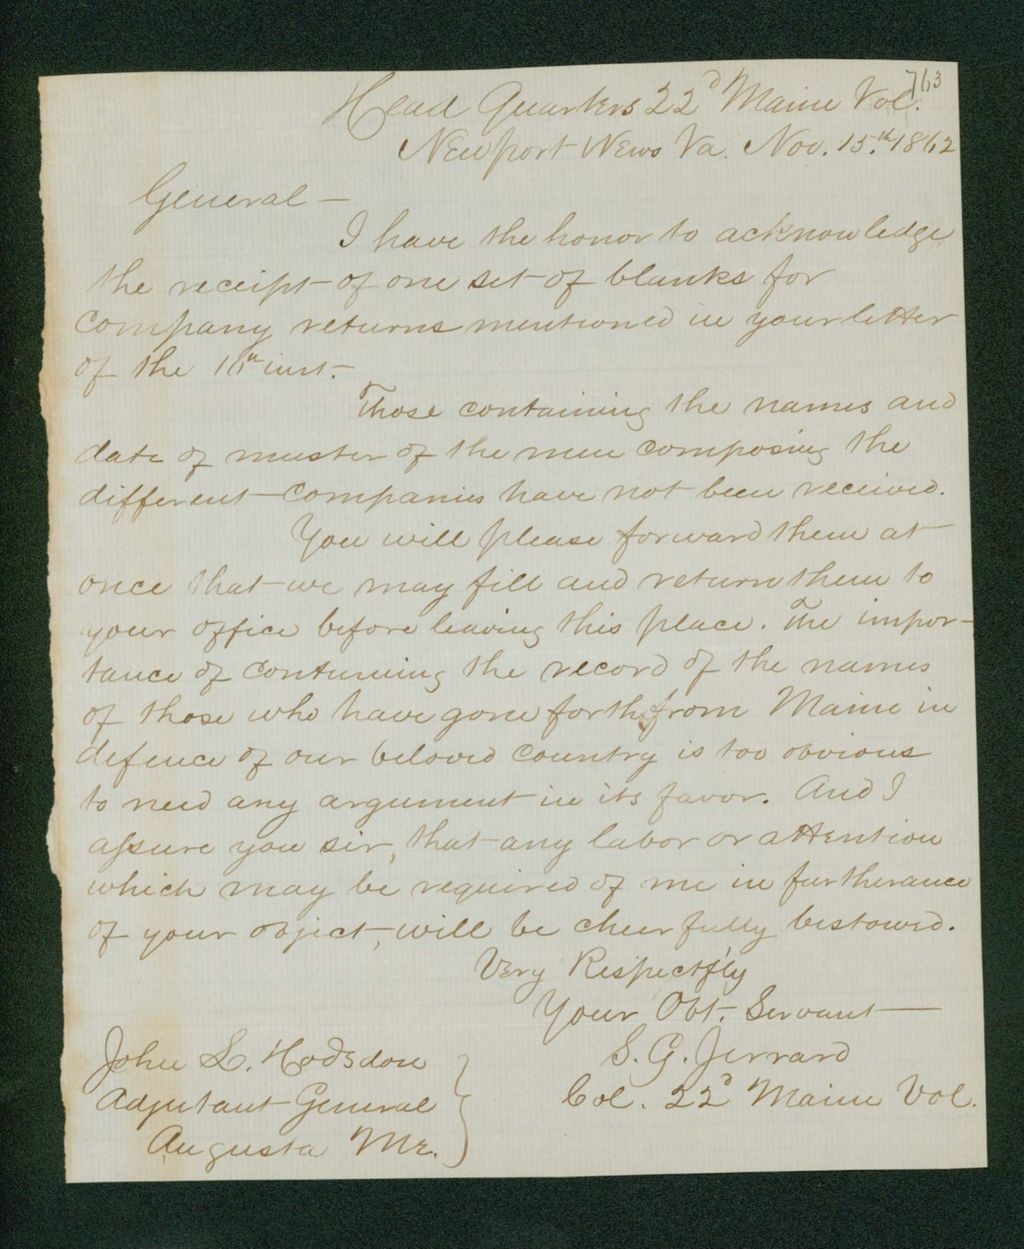 763
Head Quarters 22d Maine Vol.
Newport News Va. Nov. 15.th 1862
General —
I have the honor to acknowledge
the receipt of one set of blanks for
company returns mentioned in your letter
of the 10th inst.
Those containing the names and
date of muster of the men composing the
different companies have not been received.
You will please forward them at
once that we may fill and return them to
your office before leaving this place. The impor-
tance of continuing the record of the names
of those who have gone forth from Maine in
defence of our beloved country is too obvious
to need any argument in its favor. And I
assure you sir, that any labor or attention
which may be required of me in furtherance
of your object, will be cheerfully bestowed.
Very Respectfly
Your Obt. Servant
S. G. Jerrard
Col. 22d Maine Vol.
John L. Hodsdon
Adjutant General
Augusta Me.